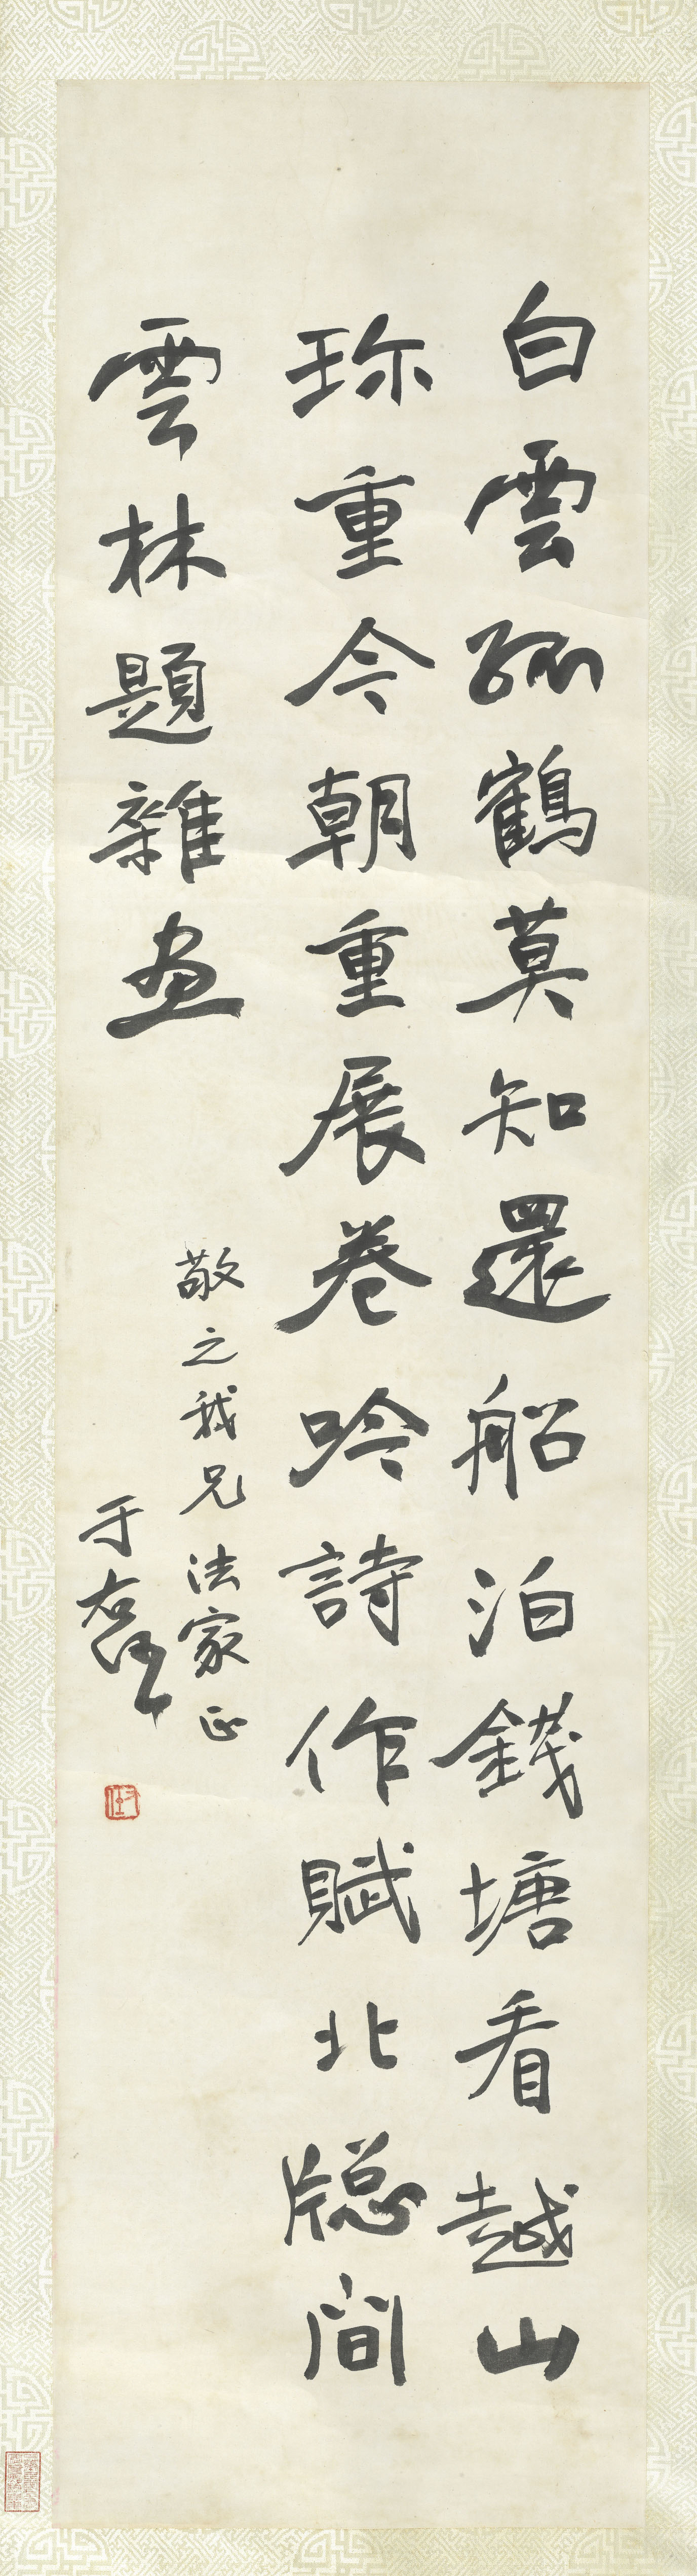 白雲孤鶴莫知還船泊錢塘看越山
珎重今朝重展卷吟詩作賦北牕間
雲林題雜画
敬之我兄法家正
于右任